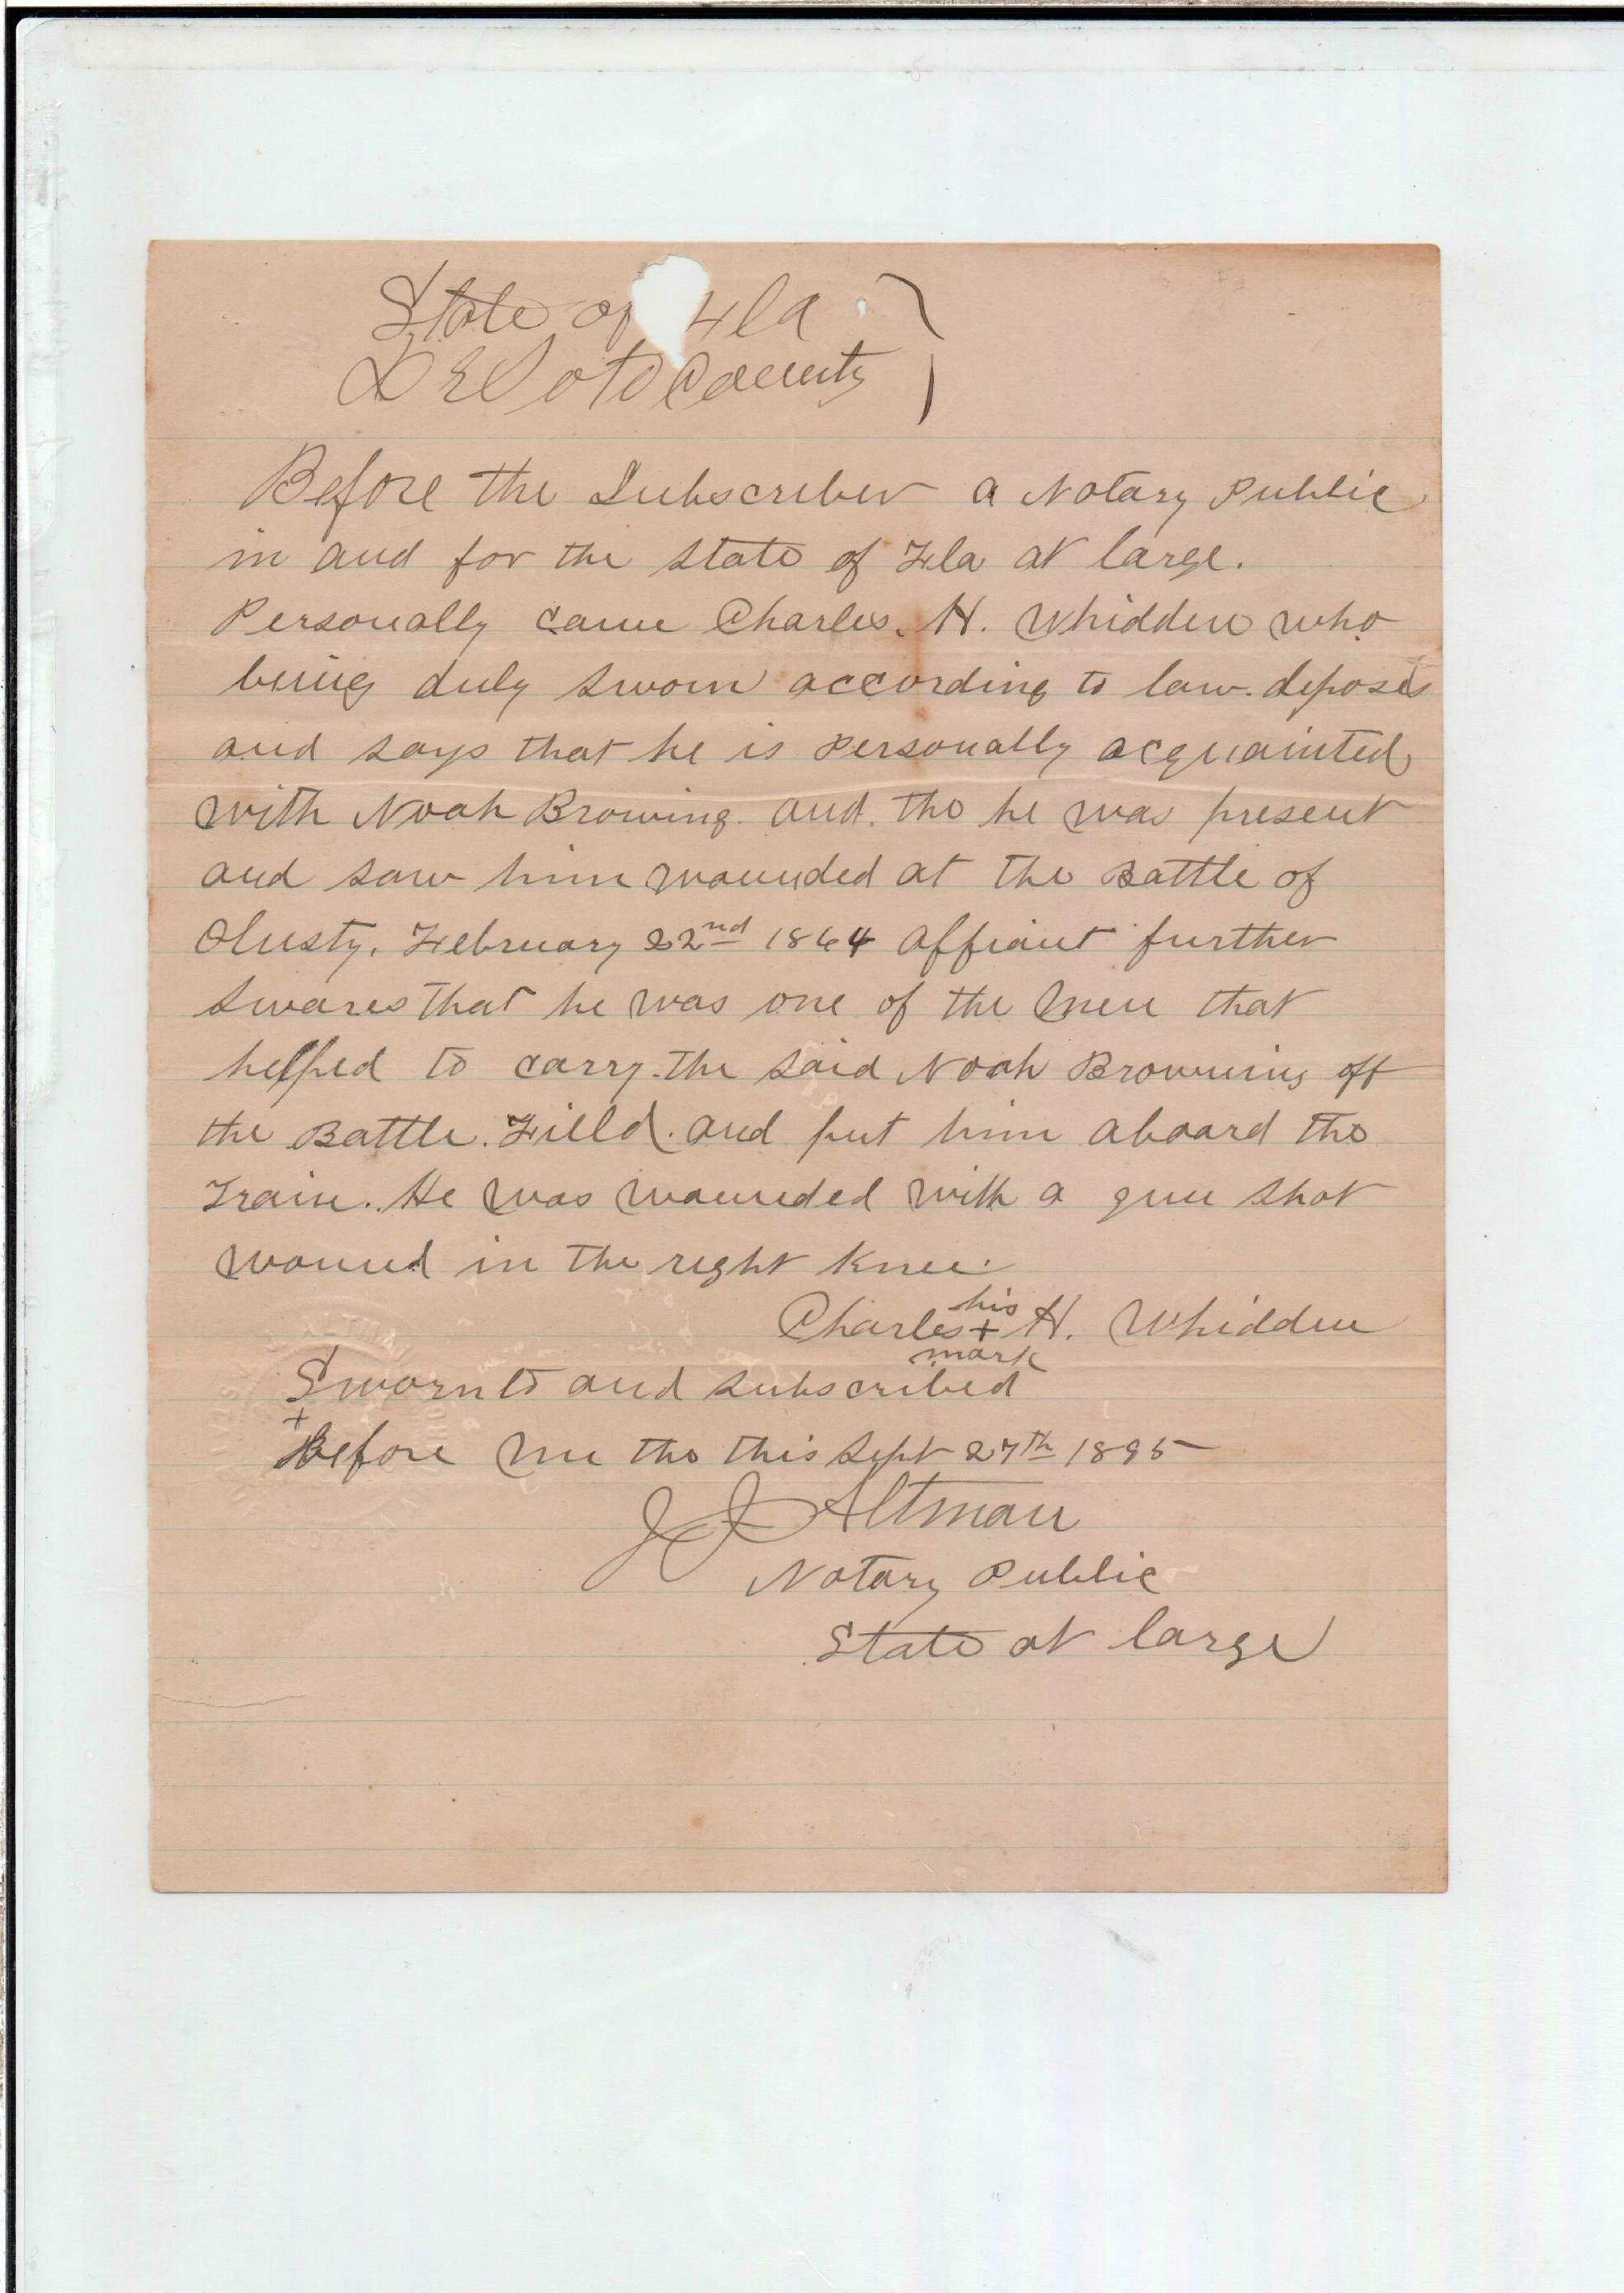 State of Fla
DESoto County
Before the Subscriber a Notary Public
in and for the state of Fla at large.
Personally came Charles. H. Whidden who
being duly sworn according to law. deposes
and says that he is Personally acquainted
with Noah Browing. and. the he was present
and saw him wounded at the Battle of
Olusty. February 22nd 1864 affiant further
swares that he was one of the men that
helped to carry. the said Noah Browning off
the Battle. Filld. and put him aboard the
Train. He was wounded with a gun shot
wound in the right knee.
his
Charles + H. Whidden
mark
Sworn to and subscribed
+
Before me the this Sept 27th 1895
J J Altman
Notary Public
State at large